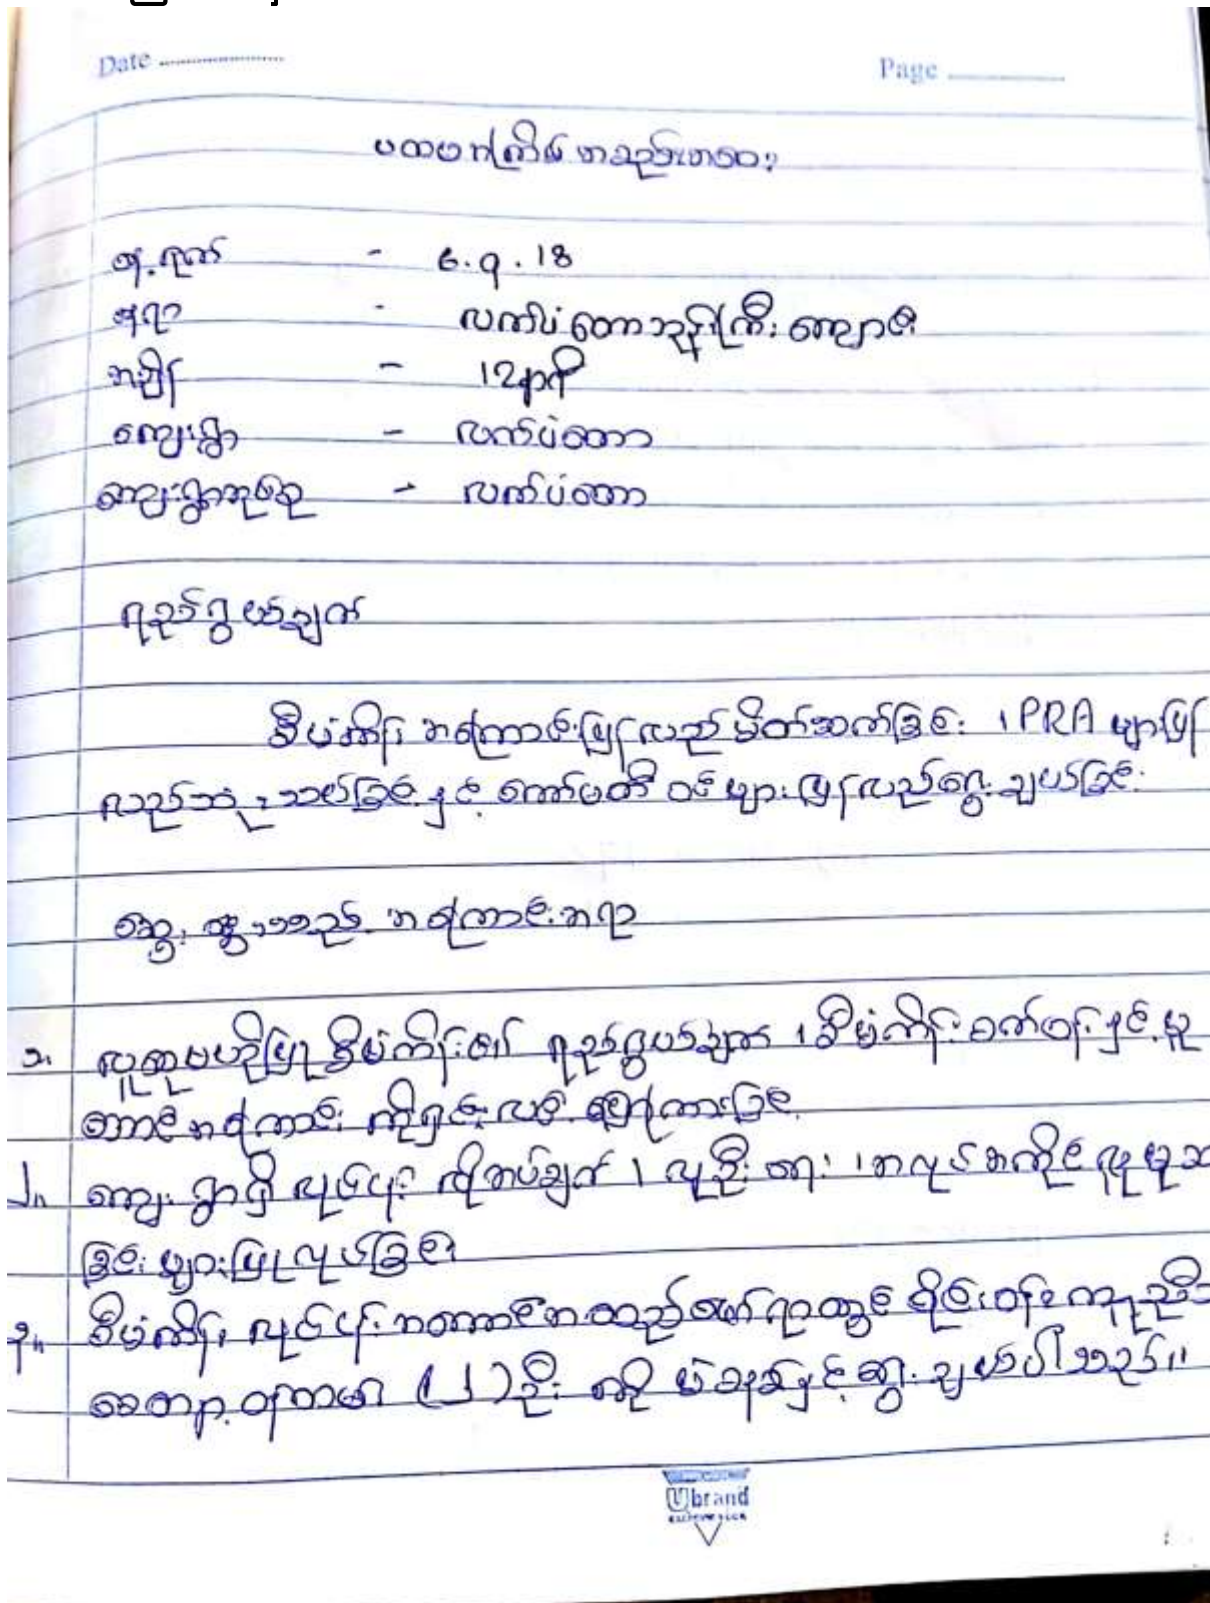 Date
Page
ပထမအကြိမ် အစည်းအဝေး
နေ့.ရက် - ၆.၇.18
နေရာ - လက်ပံတောဘုန်းကြီးကျောင်း
အချိန် - 12နာရီ
ကျေးရွာ - လက်ပံတော
ကျေးရွာအုပ်စု - လက်ပံတော
ရည်ရွယ်ချက်
စီမံကိန်း အကြောင်းပြန်လည် မိတ်ဆက်ခြင်း ၊ PRA များပြန်
လည်သုံးသပ်ခြင်း နှင့် ကော်မတီ ဝင်များ ပြန်လည်ရွေးချယ်ခြင်း
ဆွေးနွေးသည့် အကြောင်းအရာ
၁။ လူထုဗဟိုပြု စီမံကိန်း၏ ရည်ရွယ်ချက် ၊ စီမံကိန်း မက်ဝန်းနှင့် မူ
ဘောင်အကြောင်း ကိုရှင်းလင်း ပြောကြားခြင်း
၂။ ကျေးရွာရှိ လုပ်ငန်း လိုအပ်ချက် ၊ လူဦးရေ ၊ အလုပ်အကိုင်
ခြင်း များပြုလုပ်ခြင်း
၃။ စီမံကိန်း လုပ်ငန်း အကောင်အထည်ဖော်ရာတွင် ဝိုင်းဝန်းကူညီ
စေတနာ့ဝန်ထမ်း (၂) ဦး ကို မဲစနစ်နှင့် ရွေးချယ်ပါသည်။
U brand